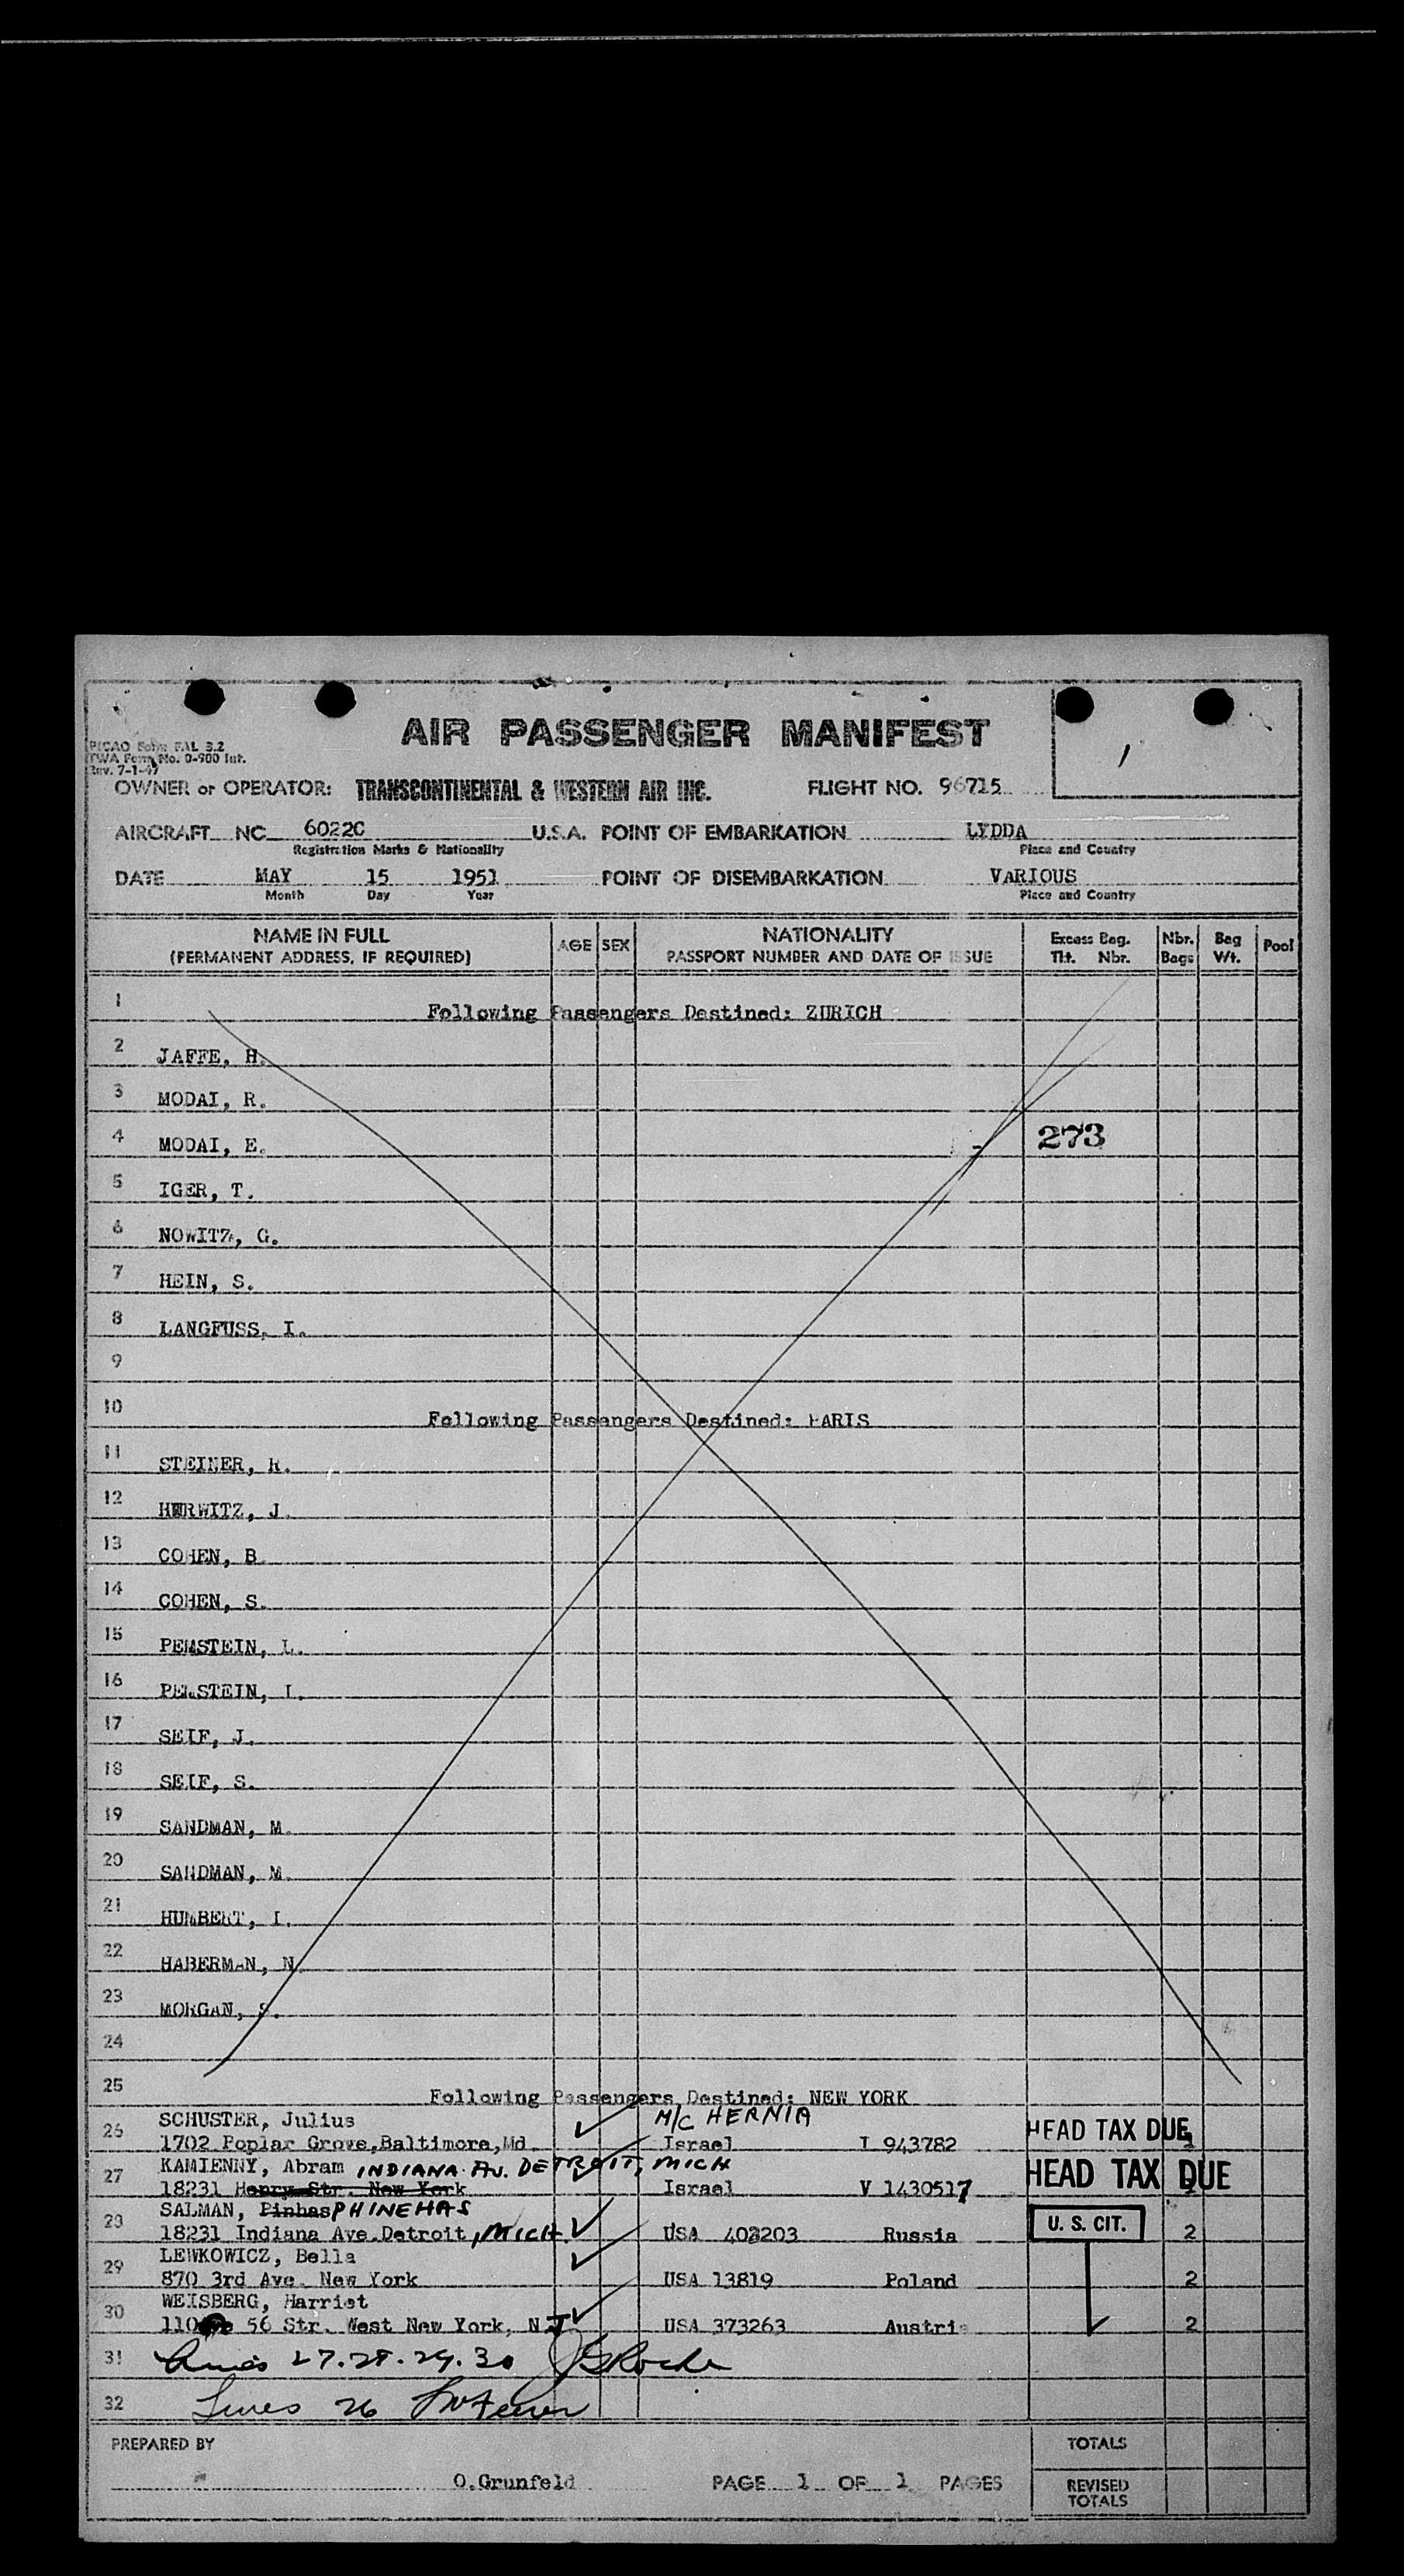 AIR PASSENGER MANIFEST
1
PICAO Form FAL 3.2
TWA Form No. 0-900 Int.
Rev. 7-1-47
OWNER or OPERATOR: TRANSCONTINENTAL & WESTERN AIR INC. FLIGHT NO. 96715
AIRCRAFT NC 6022C U.S.A. POINT OF EMBARKATION LYDDA
Registration Marks & Nationality Place and Country
DATE MAY 15 1951 POINT OF DISEMBARKATION VARIOUS
Month Day Year Place and Country
NAME IN FULL AGE SEX NATIONALITY Excess Bag. Nbr. Bag Pool
(PERMANENT ADDRESS, IF REQUIRED) PASSPORT NUMBER AND DATE OF ISSUE Tkt. Nbr. Bags Wt.
1 Following Passengers Destined: ZURICH
2 JAFFE, H.
3 MODAI, R.
4 MODAI, E. 273
5 IGER, T.
6 NOWITZ, G.
7 HEIN, S.
8 LANGFUSS, I.
9
10 Following Passengers Destined: PARIS
11 STEINER, R.
12 HURWITZ, J.
13 COHEN, B.
14 COHEN, S.
15 PEMSTEIN, L.
16 PEMSTEIN, I.
17 SEIF, J.
18 SEIF, S.
19 SANDMAN, M.
20 SANDMAN, M.
21 HUMBERT, I.
22 HABERMAN, N.
23 MORGAN, S.
24
25 Following Passengers Destined: NEW YORK
SCHUSTER, Julius M/C HERNIA
26 1702 Poplar Grove,Baltimore,Md. Israel I 943782 HEAD TAX DUE
KAMIENNY, Abram INDIANA AV. DETROIT, MICH
27 18231 Henry Str. New York Israel V 1430517 HEAD TAX DUE
SALMAN, Pinhas PHINEHAS
28 18231 Indiana Ave.Detroit, MICH. USA 403203 Russia U. S. CIT. 2
LEWKOWICZ, Bella
29 870 3rd Ave. New York USA 13819 Poland 2
WEISBERG, Harriet
30 110 56 Str. West New York, N.J USA 373263 Austria 2
31 Lines 27.28.29.30 JGRoche
32 Lines 26
PREPARED BY TOTALS
O.Grunfeld PAGE 1 OF 1 PAGES REVISED
TOTALS